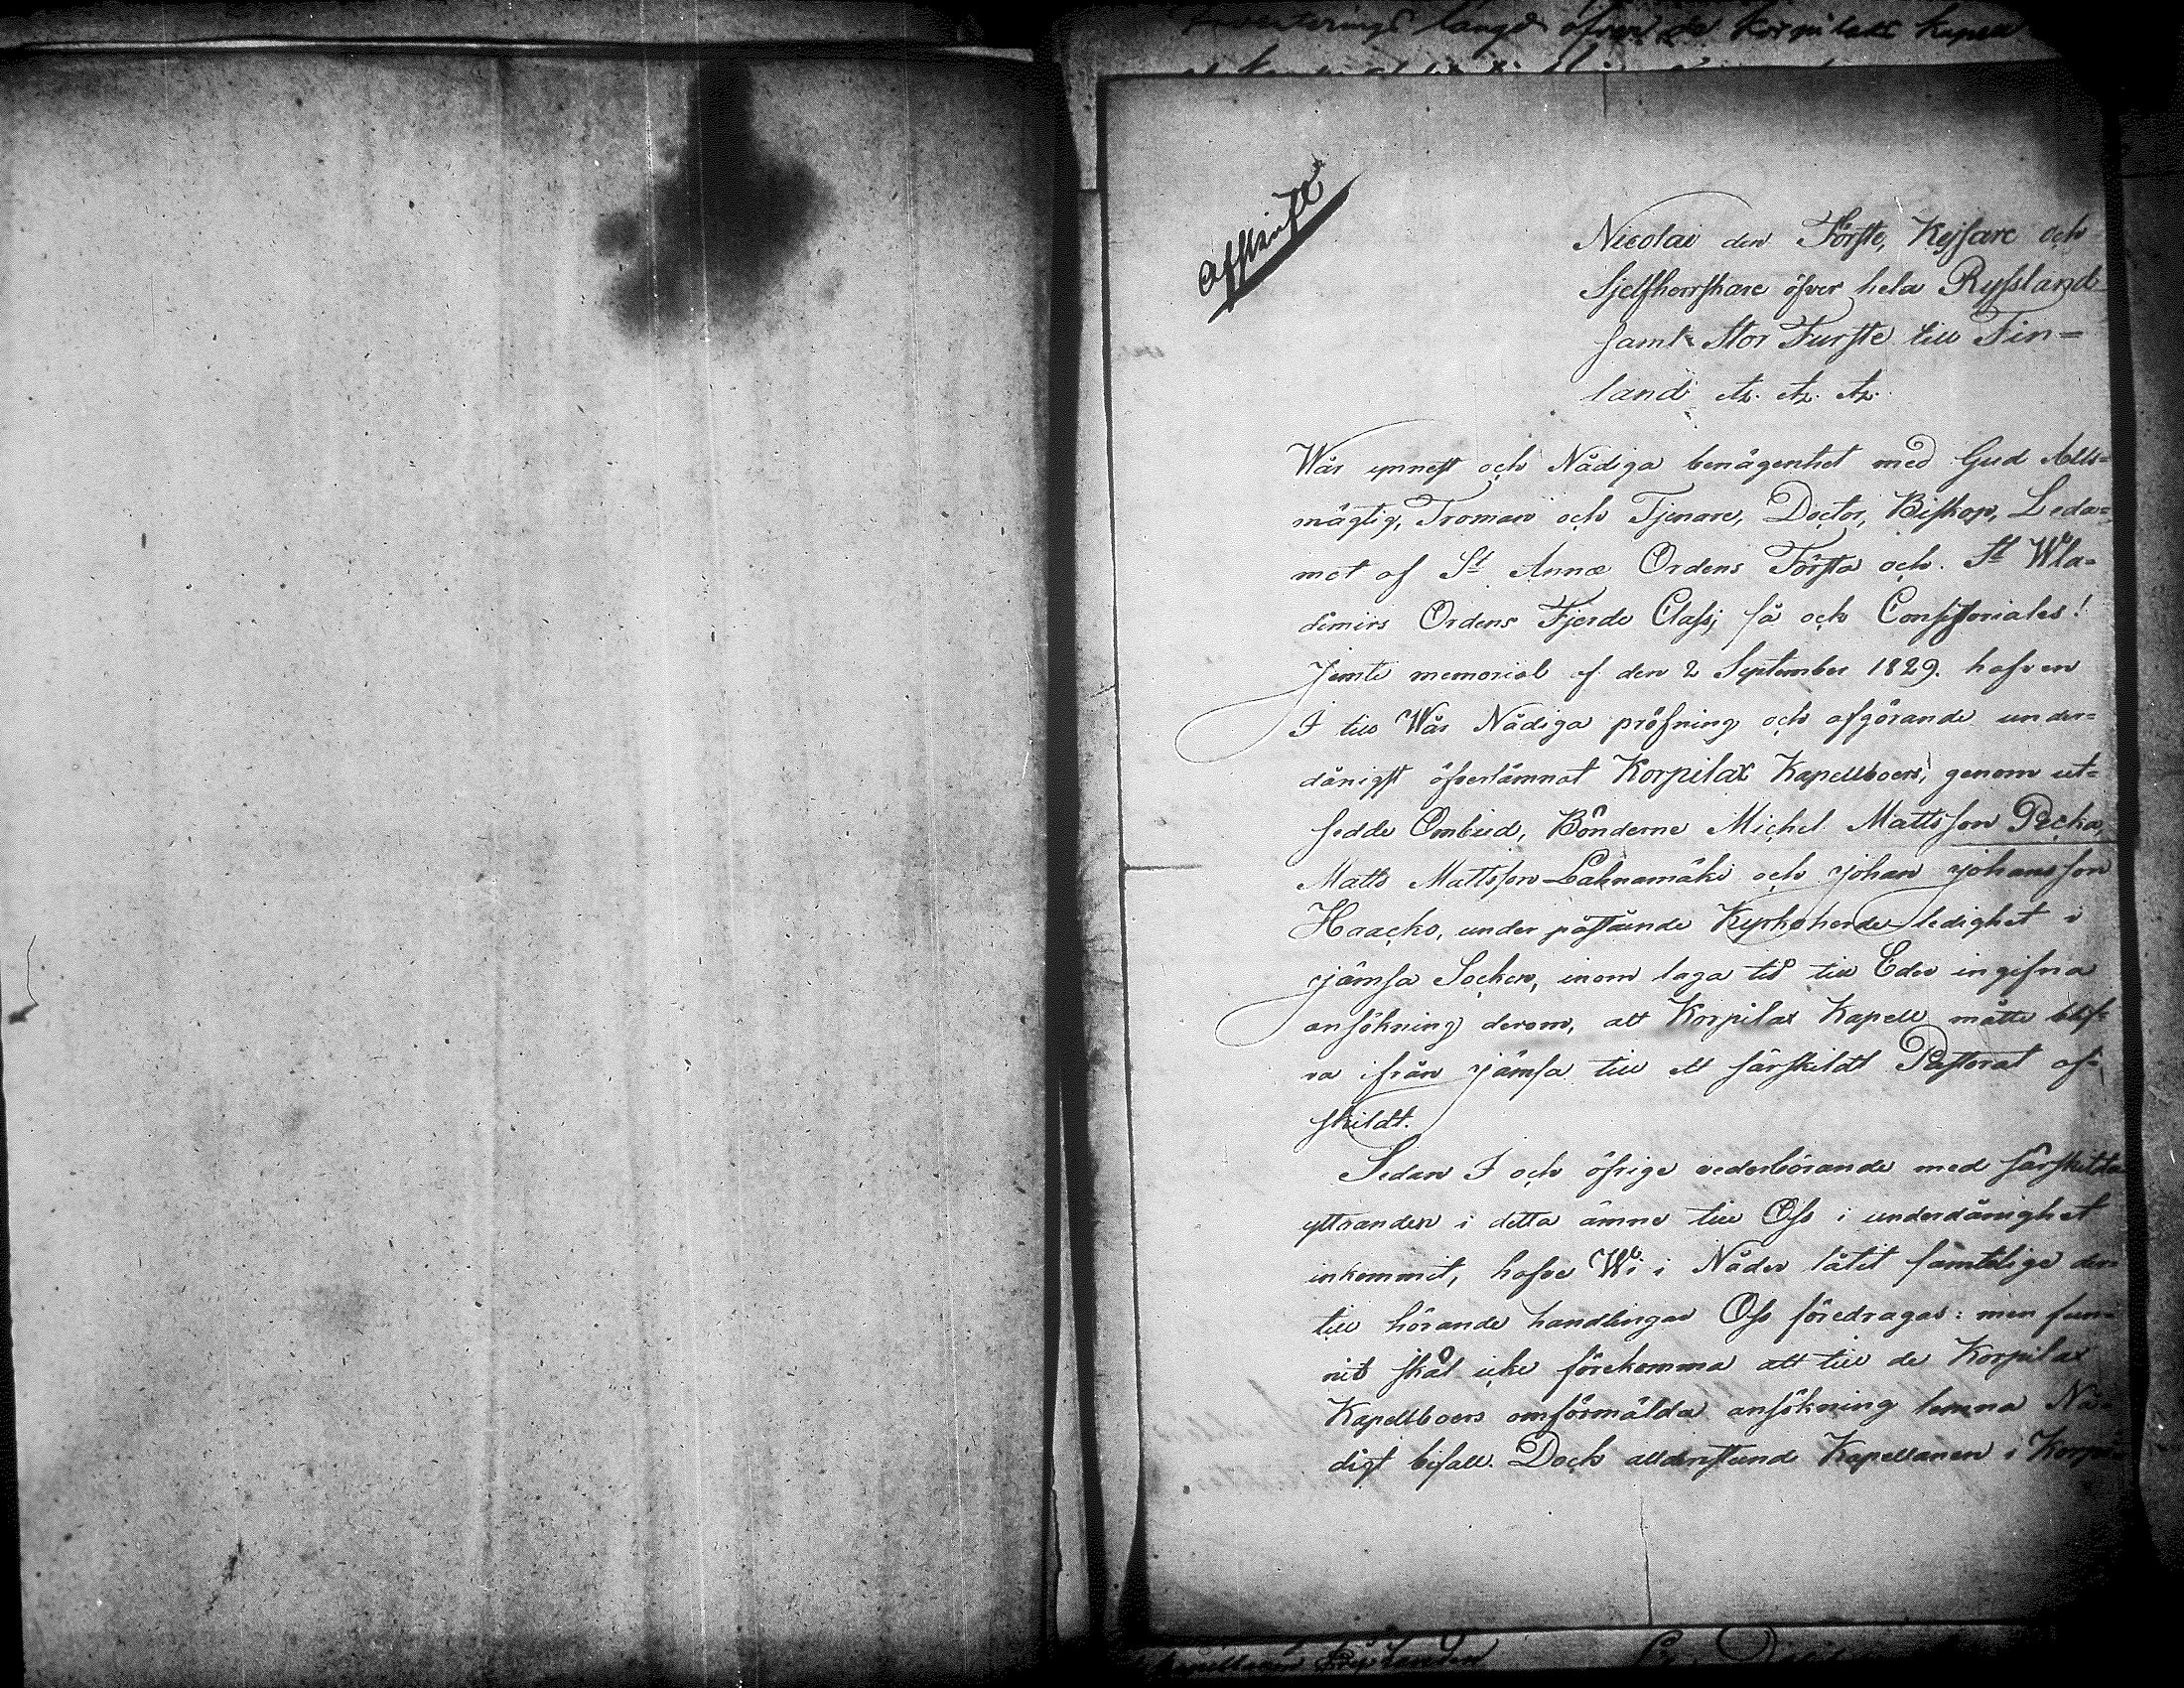 längd öfver Korpilax Kapell
Afskrift
Nicolai den Förste, Kejsare och
Sjelfherrskare öfver hela Ryssland
samt Stor Furste till Fin=
land etz. etz. etz.
Wår ynnest och Nådiga benägenhet med Gud Alls=
mägtig, Troman och Tjenare, Doctor, Biskop, Leda=
mot af St Annæ Ordens Första och St Wla=
dimirs Ordens Fjerde Class, så ock Consistoriales!
Jemte memorial af den 2 September 1829. hafven
I till Wår Nådiga pröfning och afgörande under=
dånigst öfverlämnat Korpilax Kapellboers, genom ut=
sedde Ombud, Bönderne Michel Mattsson Pecka,
Matts Mattsson Lahnamäki och Johan Johansson
Haacko, under påstående Kyrkoherde ledighet i
Jämsa Socken, inom laga tid till Eder ingifna
ansökning derom, att Korpilax Kapell måtte blif=
va ifrån Jämsa till ett särskildt Pastorat af=
skildt.
Sedan I och öfrige vederbörande med särskilda
yttranden i detta ämne till Oss i underdånighet
inkommit, hafve Wi i Nåder låtit samtelige der=
till hörande handlingar Oss föredragas: men fun=
nit skäl icke förekomma att till de Korpilax
Kapellboers omförmälda ansökning lemna Nå=
digt bifall. Dock alldenstund Kapellanen i Korpi=